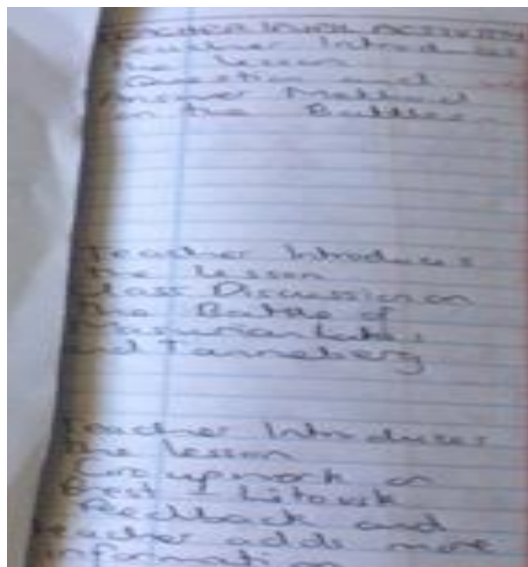 TEACHER PUPIL ACTIVITY
Teacher Introduces
the lesson
Question and
Answer Method
on the Battles
Teacher Introduces
the lesson
Class Discussion on
the Battle of
Masurian Lakes
and Tanneberg
Teacher Introduces
the lesson
Groupwork on
Brest - Litovsk
Feedback and
teacher adds more
information